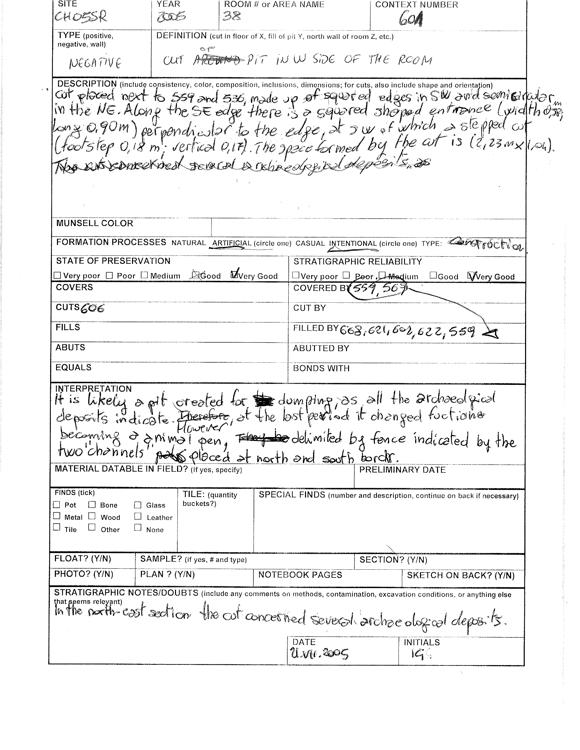 SITE YEAR ROOM # or AREA NAME CONTEXT NUMBER
CH05SR 2005 38 601
TYPE (positive, negative, wall) DEFINITION (cut in floor of X, fill of pit Y, north wall of room Z, etc.)
NEGATIVE CUT OF PIT IN W SIDE OF THE ROOM
DESCRIPTION (include consistency, color, composition, inclusions, dimensions; for cuts, also include shape and orientation)
Cut placed next to 559 and 536, made up of squared edges in SW and semicircular
in the NE. Along the SE edge there is a squared shaped entrance (width
long 0,90m) perpendicular to the edge, at SW of which a stepped cut
(footstep 0,18 m; vertical 0,17). The space formed by the cut is (2,23m x
MUNSELL COLOR
FORMATION PROCESSES NATURAL ARTIFICIAL (circle one) CASUAL INTENTIONAL (circle one) TYPE: Construction
STATE OF PRESERVATION STRATIGRAPHIC RELIABILITY
Very poor Poor Medium Good Very Good Very poor Poor Medium Good Very Good
COVERS COVERED BY 559, 567
CUTS 606 CUT BY
FILLS FILLED BY 608, 621, 602, 622, 559
ABUTS ABUTTED BY
EQUALS BONDS WITH
INTERPRETATION
It is likely a pit created for dumping, as all the archaeolgical
deposits indicate. However, at the last period it changed fuction
becoming a animal pen, delimited by fence indicated by the
two "channels" placed at north and south bordr.
MATERIAL DATABLE IN FIELD? (if yes, specify) PRELIMINARY DATE
FINDS (tick) TILE: (quantity buckets?) SPECIAL FINDS (number and description, continue on back if necessary)
Pot Bone Glass
Metal Wood Leather
Tile Other None
FLOAT? (Y/N) SAMPLE? (if yes, # and type) SECTION? (Y/N)
PHOTO? (Y/N) PLAN ? (Y/N) NOTEBOOK PAGES SKETCH ON BACK? (Y/N)
STRATIGRAPHIC NOTES/DOUBTS (include any comments on methods, contamination, excavation conditions, or anything else
that seems relevant)
In the north-east section the cut concerned several archaeological deposits.
DATE INITIALS
21.VII.2005